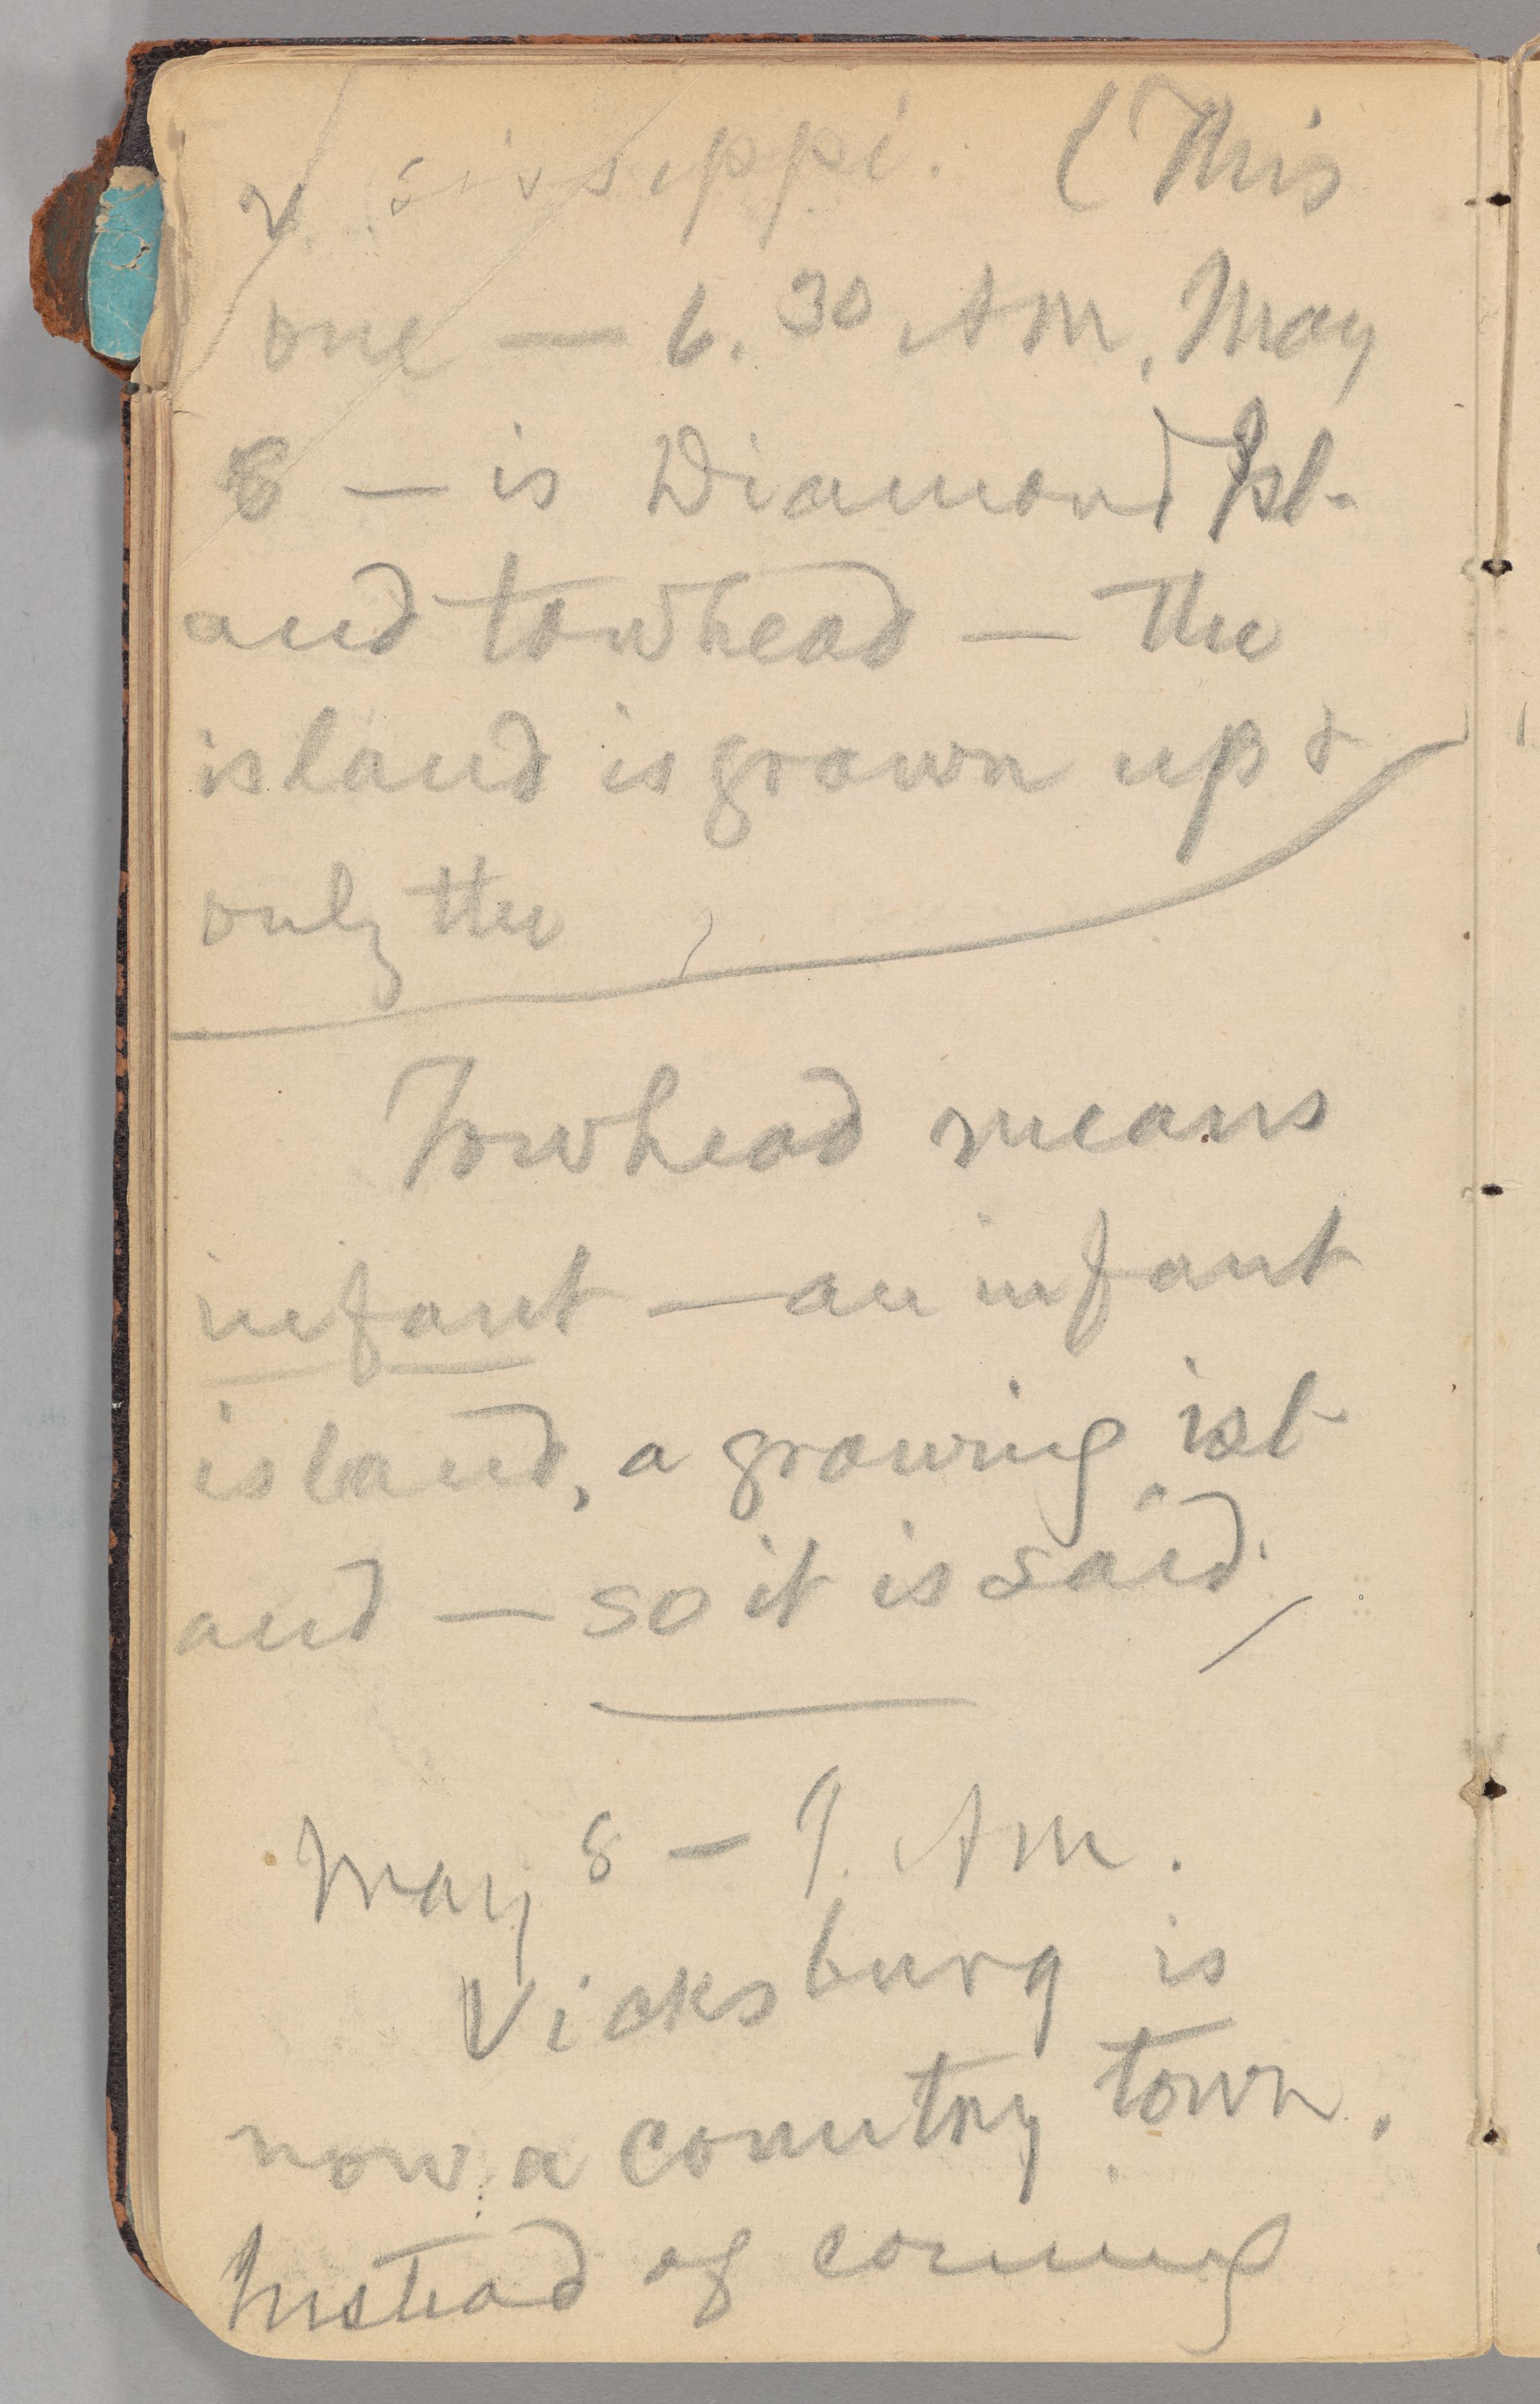 sissippi. (This
one — 6.30 AM, May
8 — is Diamond Isl-
and towhead — the
island is grown up &
only the
Towhead means
infant — an infant
island, a growing isl-
and — so it is said.
May 8 — 7. AM.
Vicksburg is
now a country town.
Instead of coming